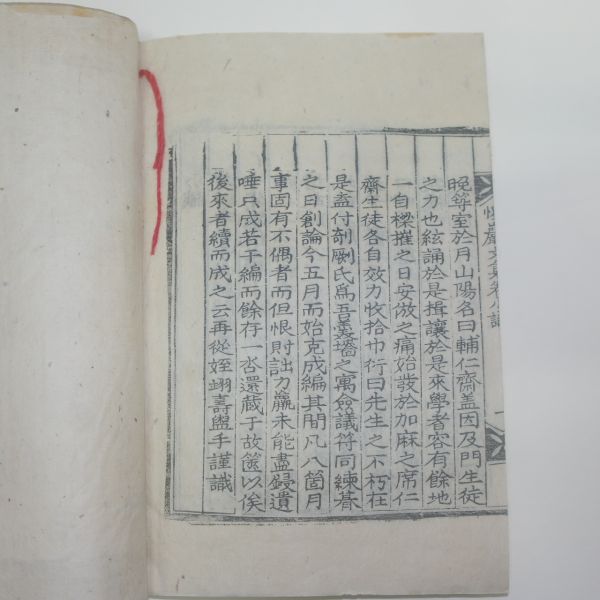 晚築室於月山陽名曰輔仁齋盖因及門生徒
之力也絃誦於是揖讓於是來學者容有餘地
一自樑摧之日安倣之痛始發於加麻之席仁
齋生徒各自效力收拾巾衍曰先生之不朽在
是盍付剞劂氏爲吾羹墻之寓僉議符同練朞
之日創論今五月而始克成編其間凡八箇月
事固有不偶者而但恨財詘力羸未能盡鋟遺
唾只成若干編而餘存一呇還藏于故篋以俟
後來者續而成之云再從姪翊壽盥手謹識